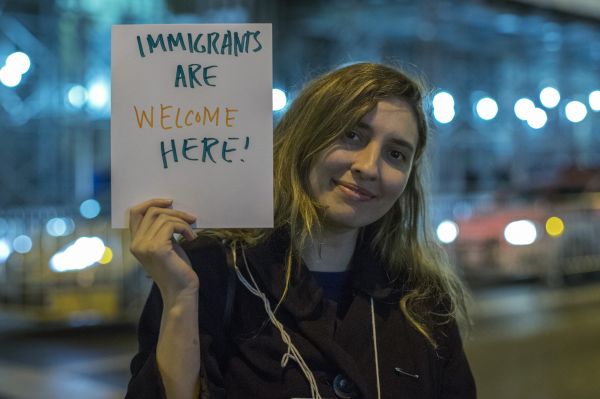 IMMIGRANTS
ARE
WELCOME
HERE!